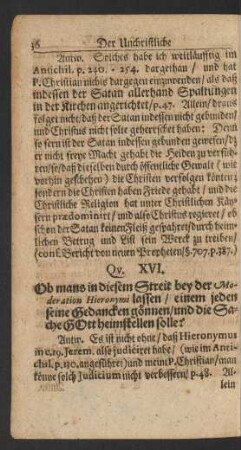 36 Der Unchristliche
Antw. Solches habe ich weitläufftig im
Antichil. p. 230. - 254. dargethan / und hat
P. Christian nichts dargegen einzuwenden / als daß
indessen der Satan allerhand Spaltungen
in der Kirchen angerichtet / p. 47. Allein / draus
folget nicht / daß der Satan indessen nicht gebunden /
und Christus nicht solte geherrschet haben: Denn
so fern ist der Satan indessen gebunden gewesen / daß
er nicht freye Macht gehabt die Heiden zu verfüh-
ren / so / daß dieselben durch öffentliche Gewalt (wie
vorhin geschehen) die Christen verfolgen können /
sondern die Christen haben Friede gehabt / und die
Christliche Religion hat unter Christlichen Käy-
sern prædominirt / und also Christus regieret / ob
schon der Satan keinen Fleiß gespahret / durch heim-
lichen Betrug und List sein Werck zu treiben /
(conf. Bericht von neuen Propheten / §. 707. p. 387.)
Qv. XVI.
Ob mans in diesem Streit bey der Mo-
deration Hieronymi lassen / einem jeden
seine Gedancken gönnen / und die Sa-
che GOtt heimstellen solle?
Antw. Es ist nicht ohne / daß Hieronymus
in c. 19. Jerem. also judiciret habe / (wie im Anti-
chil. p. 110. angeführet) und meint P. Christian / man
könne solch Judicium nicht verbessern / p. 48. Al-
lein